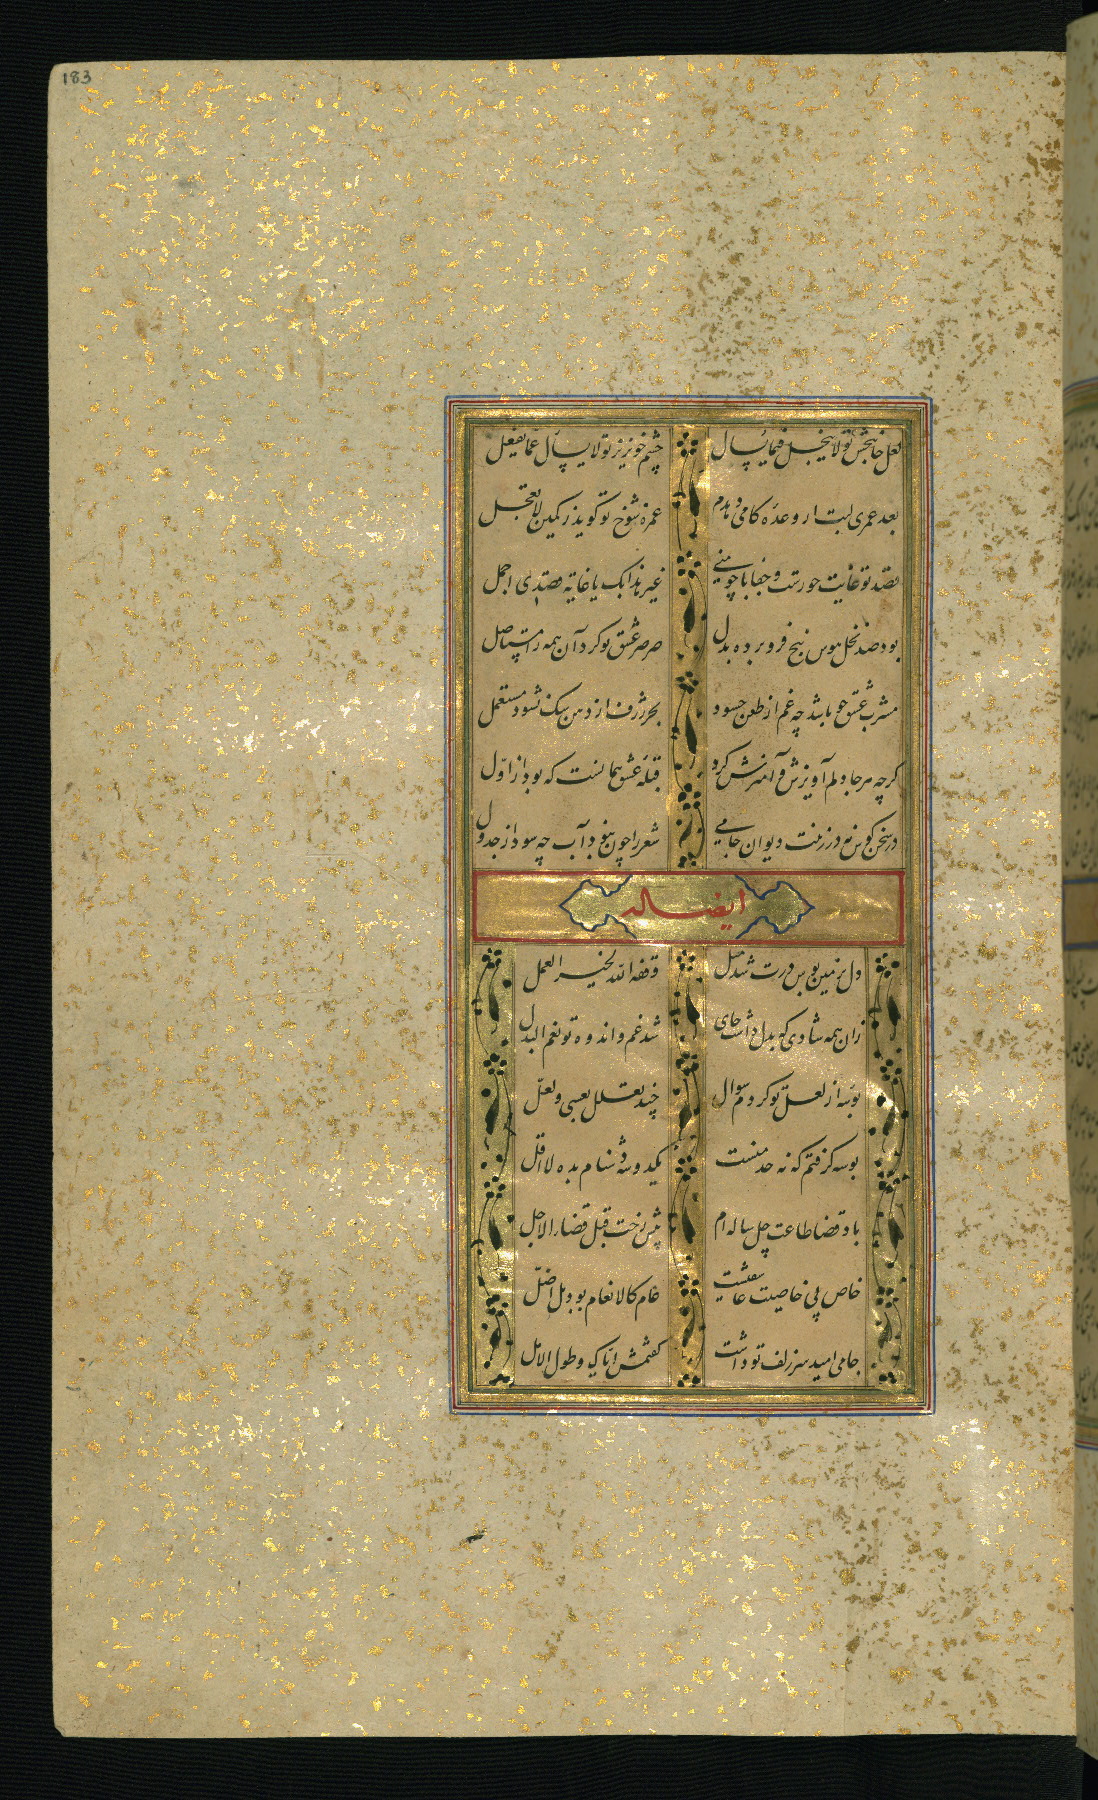 183
لعل جانبخش تو لا یبخل فیما یسال چشم خونریز تو لا یسال عما یفعل
بعد عمری لبت ار وعده کامی دهدم غمزه شوخ تو کوید ز کمین لا تعجل
قصد تو غایت جورست و جفا با چو منی غیر هذا بک یا غایة قصدی اجمل
بود صد نخل هوس بیخ فرو برده بدل صرصر عشق تو کرد آن همه را مستاصل
مشرب عشق چو باشد چه غم از طعن حسود بحر ژرف از دهن سک نشود مستعمل
کرچه هر جا دلم آویزش و آمیزش کرد قبله عشق همانست که بود از اول
در سخن کوش نه در زینت دیوان جامی شعر را چون نبود آب چه سود از جدول
ایضا له
دل بزمین بوس درت شد مثل وفقه الله لخیر العمل
زان همه شادی که بدل داشت جای شد غم و اندوه تو نعم البدل
بوسه از لعل تو کردم سوال چند تعلل بعسی و لعل
بوسه کرفتم که نه حد منست یکدوسه دشنام بده لا اقل
باد قضا طاعت چل ساله ام پیش رخت قبل قضاء الاجل
خاص پی خاصیت عاشقیست عام کالانعام بود بل اضل
جامی امید سر زلف تو داشت کفتمش ایاک و طول الامل